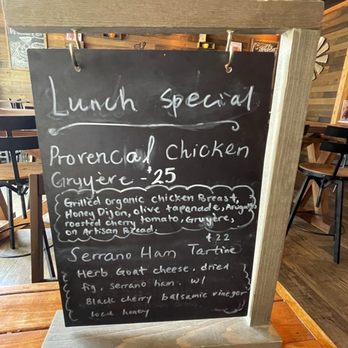 Lunch Special
Provencial Chicken
Gruyère - 25
Grilled organic chicken Breast,
Honey Dijon, olive tapenade, Arugula,
roasted cherry tomato, Gruyère,
on Artisan Bread.
$22
Serrano Ham Tartine
Herb Goat cheese, dried
fig, serrano ham. w/
Black cherry balsamic vinegar
local honey